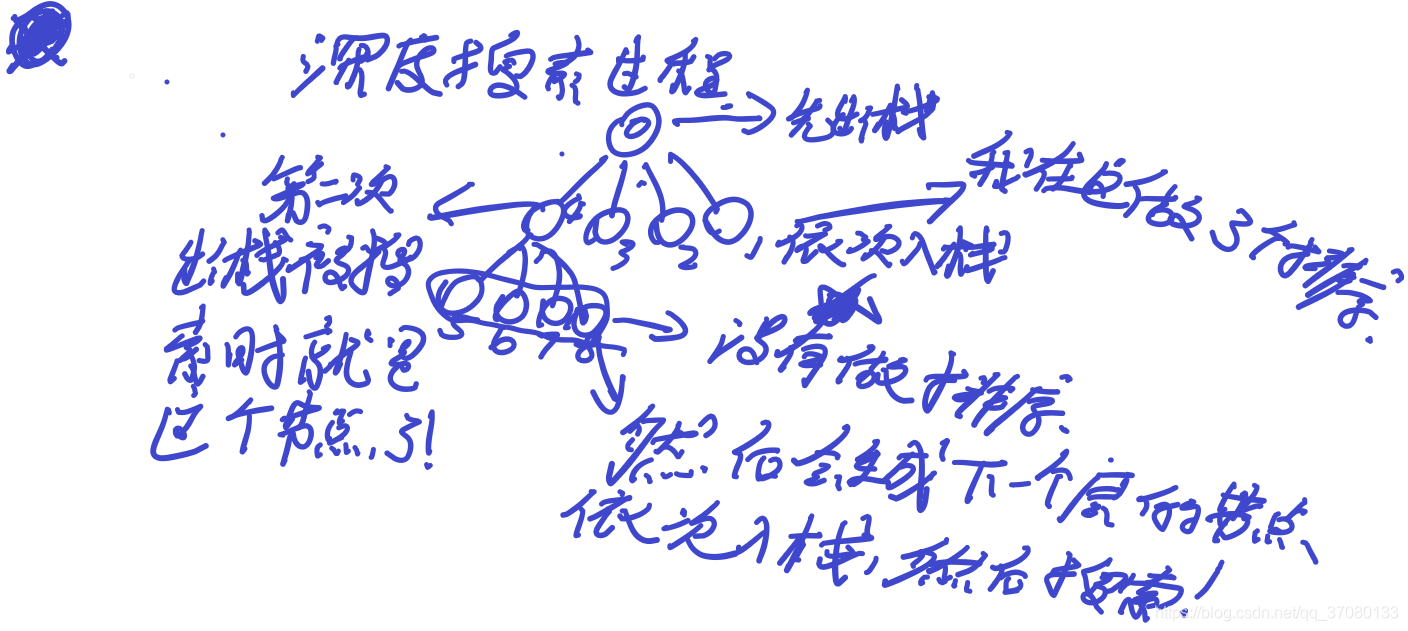 深度搜索过程
先进栈
第一次
出栈后搜
索时就是
这个节点,3!
4
3
2
1
依次入栈
我在这行做了个排序.
5
6
7
8
没有做才排序
然后会生成下一个层的节点、
依次入栈,然后搜索!
https://blog.csdn.net/qq_37080133